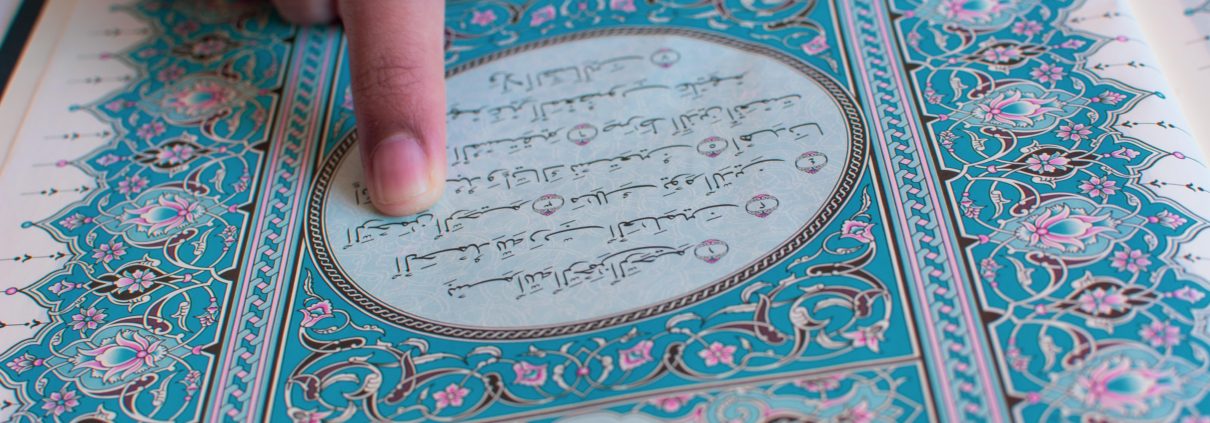 بِسْمِ اللَّهِ الرَّحْمَٰنِ الرَّحِيمِ ١
الْحَمْدُ لِلَّهِ رَبِّ الْعَالَمِينَ ٢
الرَّحْمَٰنِ الرَّحِيمِ ٣ مَالِكِ يَوْمِ الدِّينِ ٤
وَإِيَّاكَ نَسْتَعِينُ ٥ اهْدِنَا
الْمُسْتَقِيمَ ٦ صِرَاطَ الَّذِينَ أَنْعَمْتَ
غَيْرِ الْمَغْضُوبِ عَلَيْهِمْ
وَلَا الضَّالِّينَ ٧